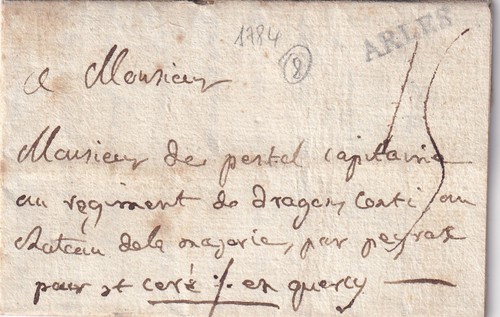 1784
8
ARLES
15
a Monsieur
Monsieur de pestel capitaine
au regiment de dragons conti au
chateau de la majorie, par peyrac
pour st ceré /. en quercy